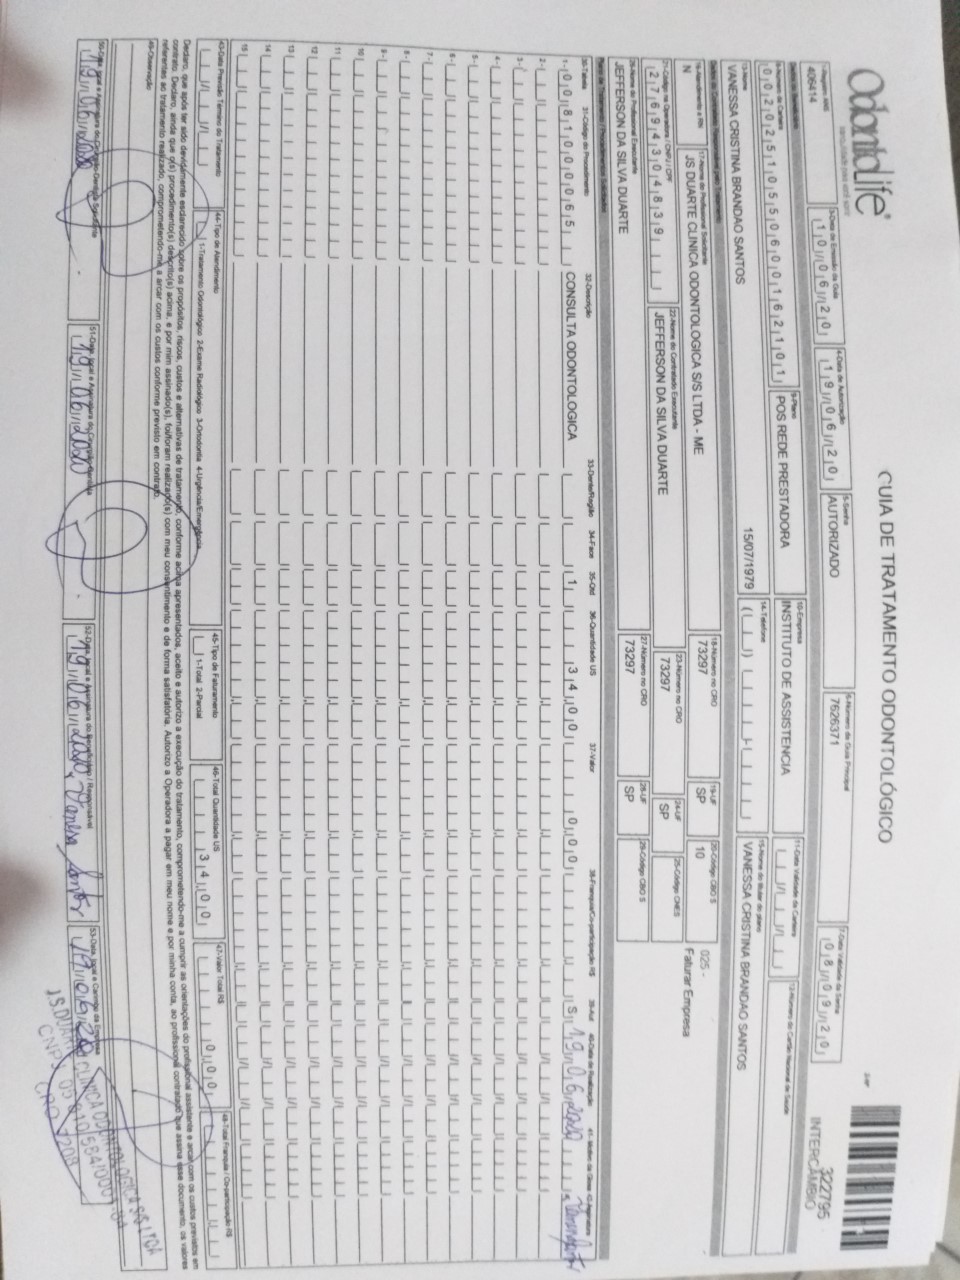 OdontoLife®
GUIA DE TRATAMENTO ODONTOLÓGICO
322795
INTERCÂMBIO
1-Registro ANS
406414
3-Data de Emissão da Guia
10/06/20
4-Data de Autorização
19/06/20
5-Senha
AUTORIZADO
6-Número da Guia Principal
7626371
7-Data Validade da Senha
08/09/20
8-Número da Carteira
00202510550600162101
9-Plano
POS REDE PRESTADORA
10-Empresa
INSTITUTO DE ASSISTENCIA
11-Data Validade da Carteira
12-Número do Cartão Nacional de Saúde
13-Nome
VANESSA CRISTINA BRANDAO SANTOS
15/07/1979
14-Telefone
15-Nome do titular do plano
VANESSA CRISTINA BRANDAO SANTOS
16-Atendimento a RN
N
17-Nome do Profissional Solicitante
JS DUARTE CLINICA ODONTOLOGICA S/S LTDA - ME
18-Número no CRO
73297
19-UF
SP
20-Código CBO S
10
025 -
Faturar Empresa
21-Código na Operadora / CNPJ / CPF
27694304839
22-Nome do Contratado Executante
JEFFERSON DA SILVA DUARTE
23-Número no CRO
73297
24-UF
SP
25-Código CNES
26-Nome do Profissional Executante
JEFFERSON DA SILVA DUARTE
27-Número no CRO
73297
28-UF
SP
29-Código CBO S
30-Tabela 31-Código do Procedimento 32-Descrição 33-Dente/Região 34-Face 35-Qtd 36-Quantidade US 37-Valor 38-Franquia/Co-participação R$ 39-Aut 40-Data de Realização 42-Assinatura
1- 0081000065 CONSULTA ODONTOLOGICA 1 34,00 0,00 S 19/06/2020
2-
3-
4-
5-
6-
7-
8-
9-
10
11
12
13
14
15
43-Data Previsão Término do Tratamento
44-Tipo de Atendimento
1-Tratamento Odontológico 2-Exame Radiológico 3-Ortodontia 4-Urgência/Emergência
45-Tipo de Faturamento
1-Total 2-Parcial
46-Total Quantidade US
34,00
47-Valor Total R$
0,00
48-Total Franquia / Co-participação R$
Declaro, que após ter sido devidamente esclarecido sobre os propósitos, riscos, custos e alternativas de tratamento, conforme acima apresentados, aceito e autorizo a execução do tratamento, comprometendo-me a cumprir as orientações do profissional assistente e arcar com os custos previstos em
contrato. Declaro, ainda que o(s) procedimento(s) descrito(s) acima, e por mim assinado(s), foi/foram realizado(s) com meu consentimento e de forma satisfatória. Autorizo a Operadora a pagar em meu nome e por minha conta, ao profissional contratado que assina esse documento, os valores
referentes ao tratamento realizado, comprometendo-me a arcar com os custos conforme previsto em contrato.
49-Observação
50-Data, local e Assinatura do Cirurgião-Dentista Solicitante
19/06/2020
51-Data, local e Assinatura do Cirurgião-Dentista
19/06/2020
52-Data, local e Assinatura do Beneficiário / Responsável
19/06/2020, Vanessa Santos
53-Data, local e Carimbo da Empresa
19/06/20
J.S. DUARTE CLINICA ODONTOLOGICA S/S LTDA